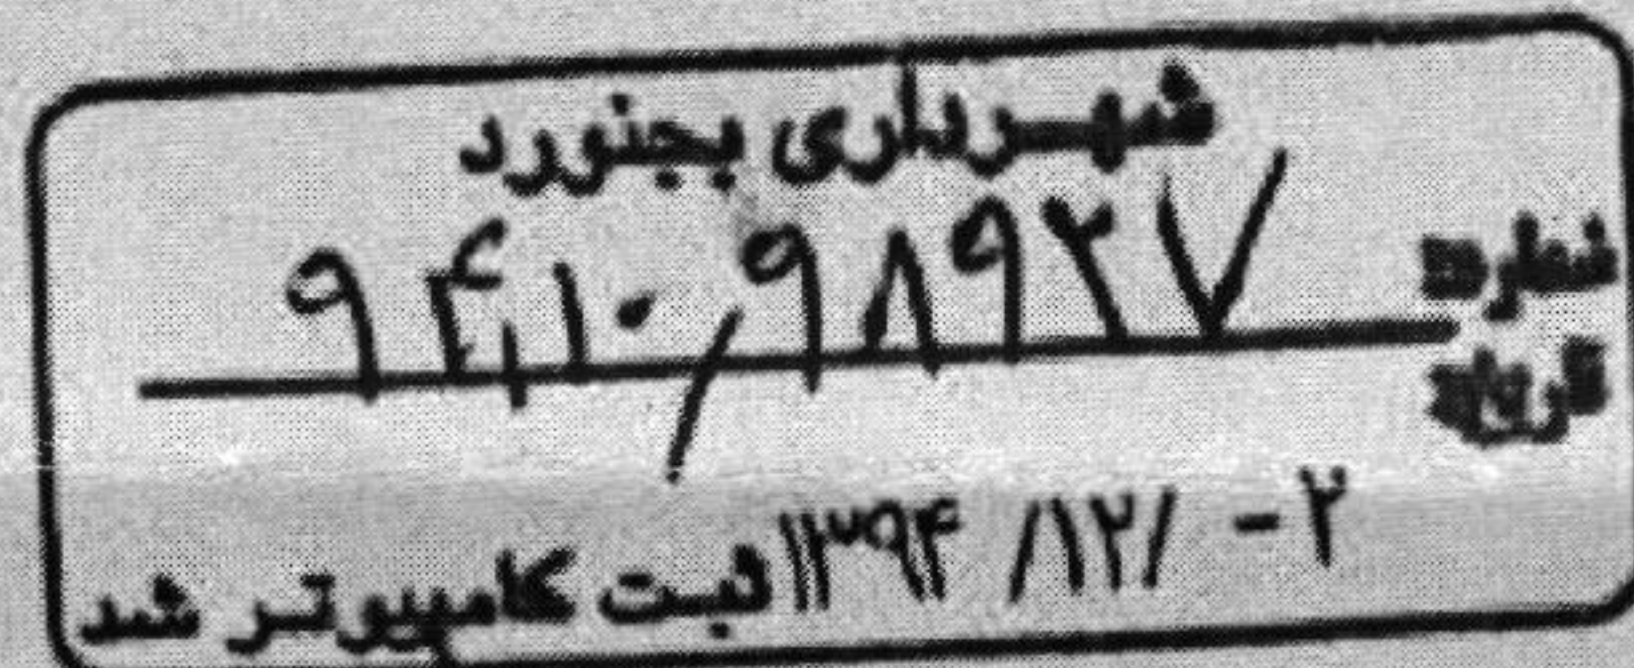 شهرداری بجنورد
شماره ۹۴،۱۰/۹۸۹۲۷
تاریخ
۱۳۹۴ /۱۲/ -۲
ثبت کامپیوتر شد